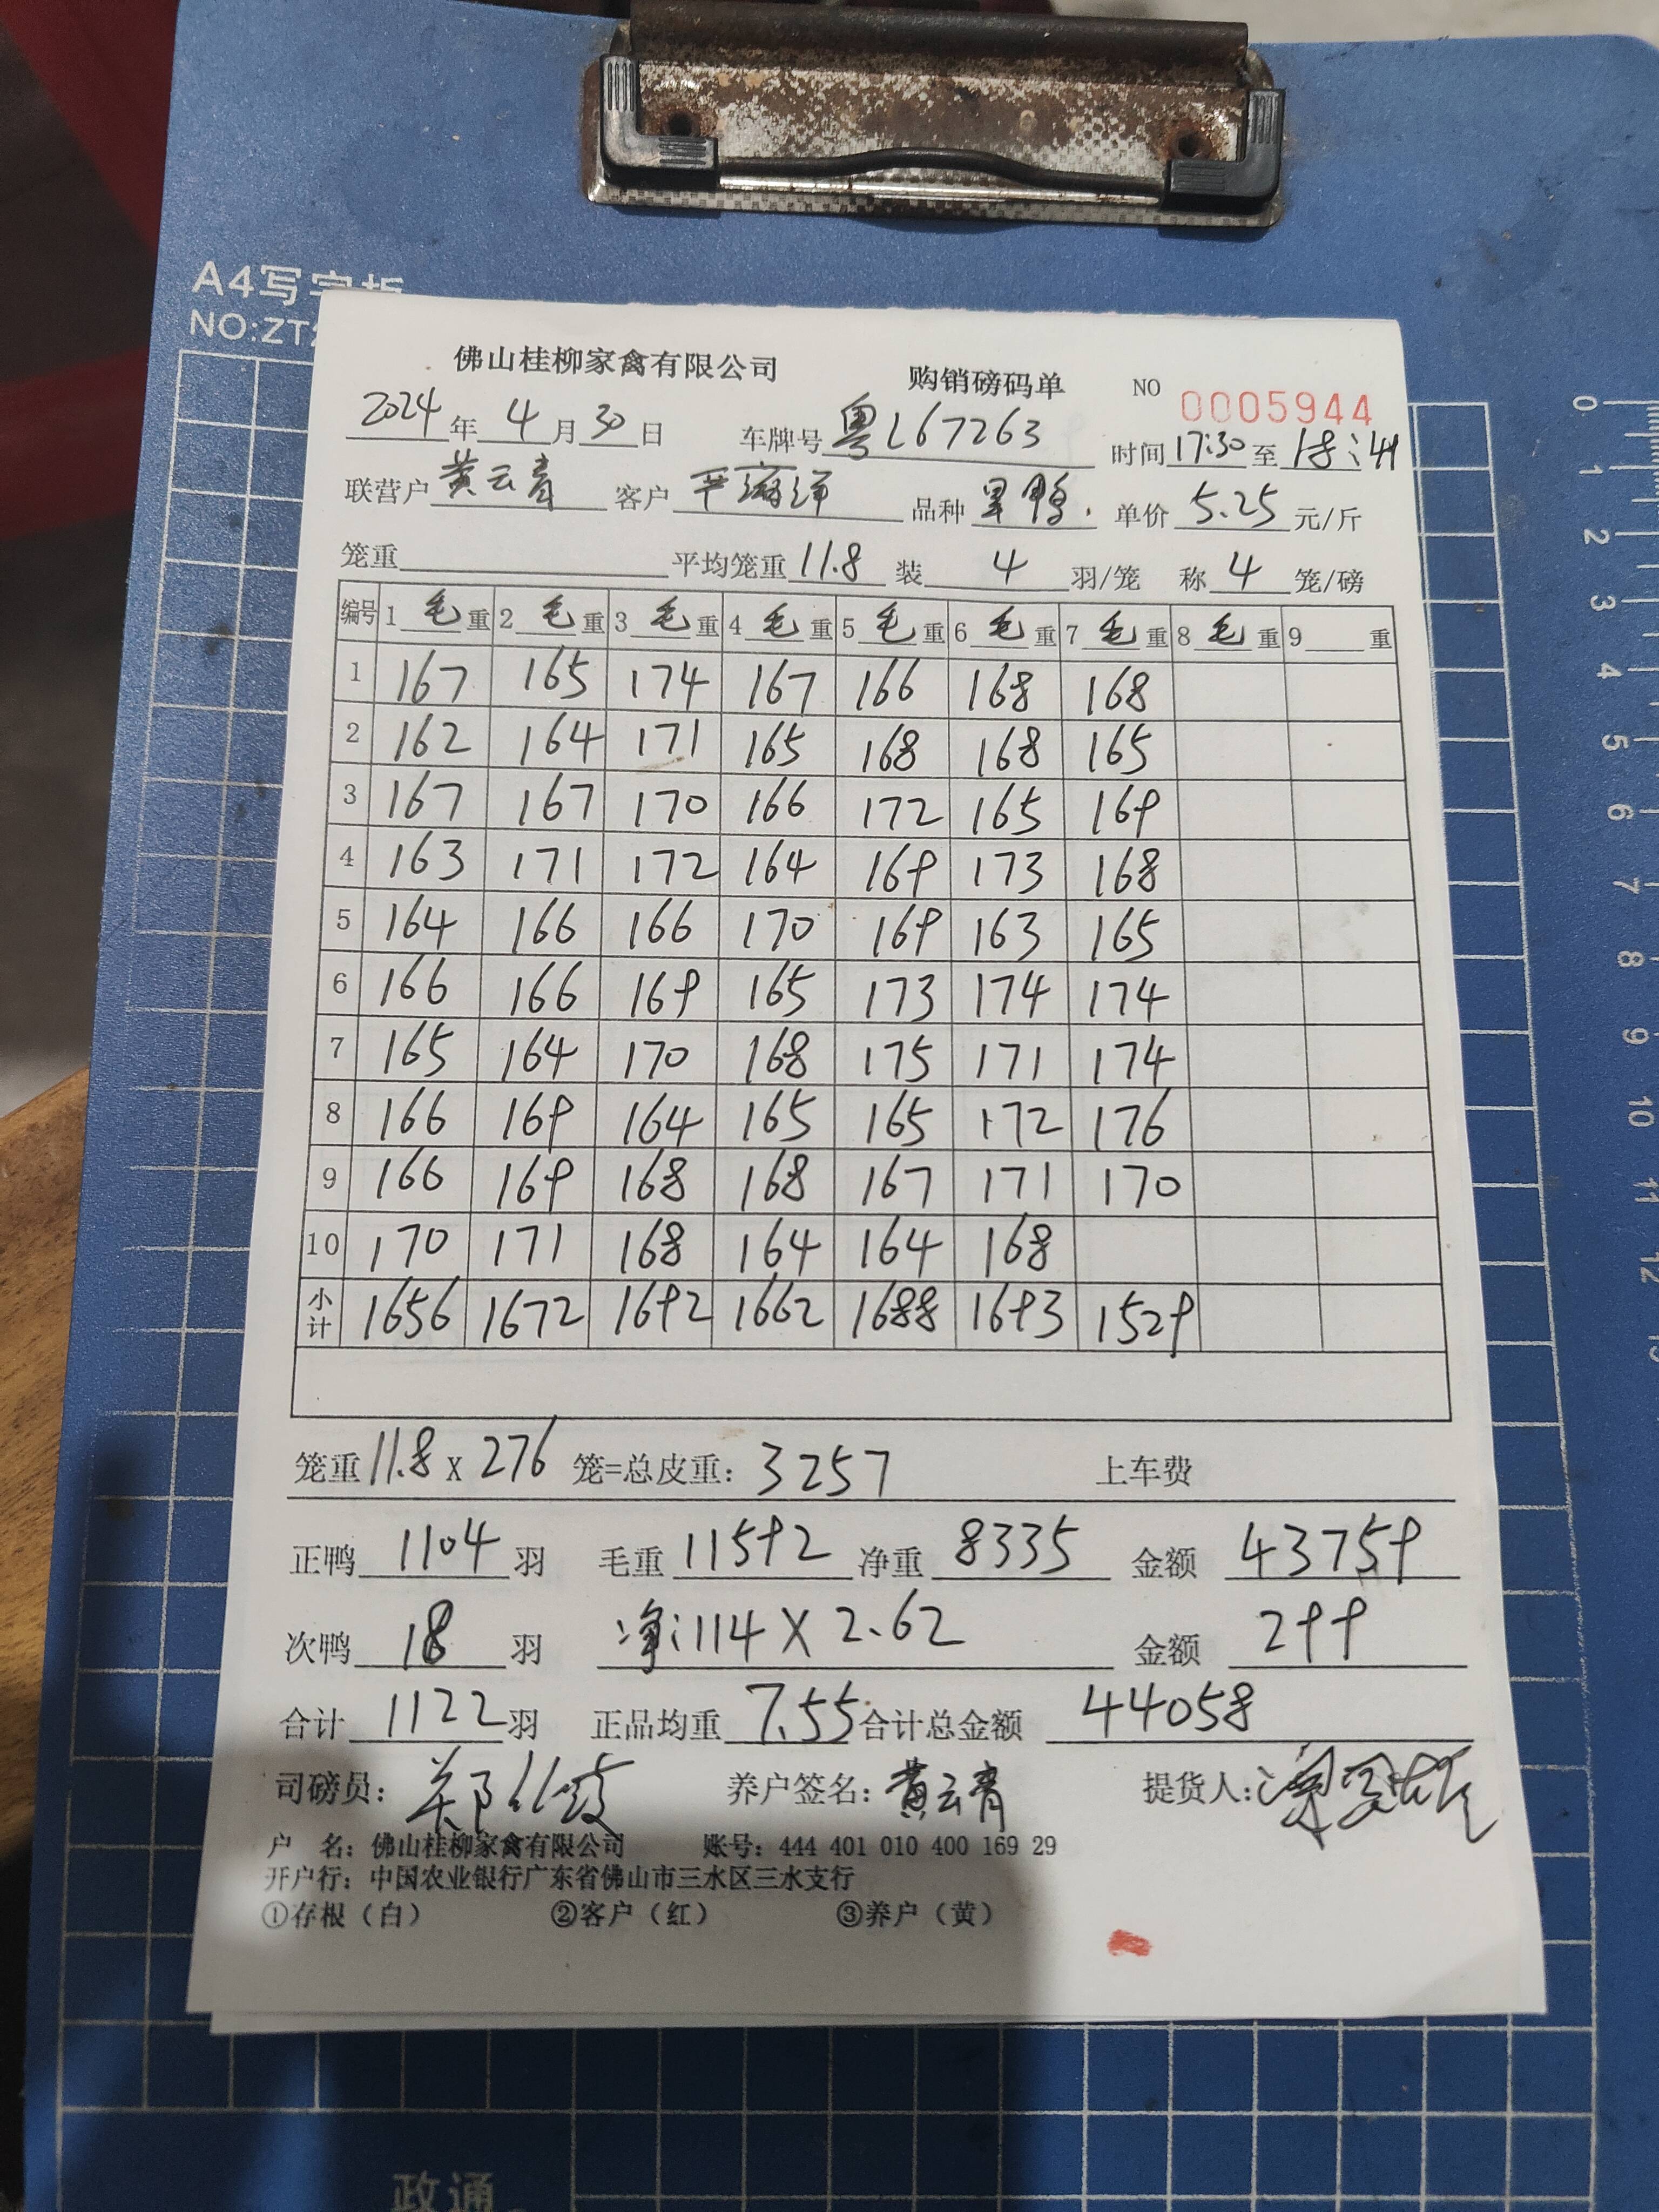 A4写字板
NO:ZT
佛山桂柳家禽有限公司 购销磅码单 NO 0005944
2024年4月30日 车牌号 粤L67263 时间 17:30 至 18:41
联营户 黄云青 客户 平海洋 品种 黑鸭. 单价 5.25 元/斤
笼重 平均笼重 11.8 装 4 羽/笼 称 4 笼/磅
编号 1 毛 重 2 毛 重 3 毛 重 4 毛 重 5 毛 重 6 毛 重 7 毛 重 8 毛 重 9 重
1 167 165 174 167 166 168 168
2 162 164 171 165 168 168 165
3 167 167 170 166 172 165 169
4 163 171 172 164 169 173 168
5 164 166 166 170 169 163 165
6 166 166 169 165 173 174 174
7 165 164 170 168 175 171 174
8 166 169 164 165 165 172 176
9 166 169 168 168 167 171 170
10 170 171 168 164 164 168
小计 1656 1672 1692 1662 1688 1693 1529
笼重 11.8 X 276 笼=总皮重: 3257 上车费
正鸭 1104 羽 毛重 11592 净重 8335 金额 43759
次鸭 18 羽 净:114 X 2.62 金额 299
合计 1122 羽 正品均重 7.55 合计总金额 44058
司磅员: 郑 养户签名: 黄云青 提货人:
户 名: 佛山桂柳家禽有限公司 账号: 444 401 010 400 169 29
开户行: 中国农业银行广东省佛山市三水区三水支行
①存根（白） ②客户（红） ③养户（黄）
0
1
2
3
4
5
6
7
8
9
10
11
12
13
政通